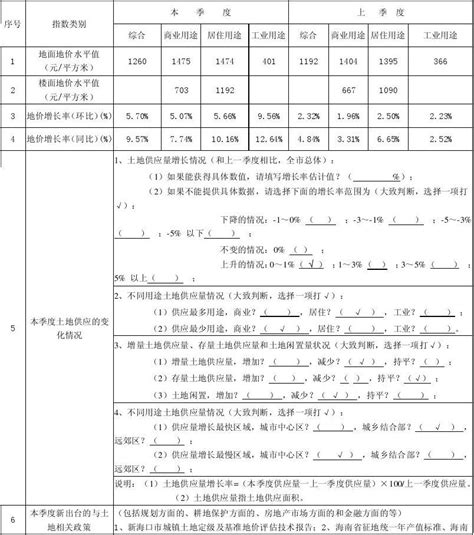 序号 指数类别 本 季 度 上 季 度
综合 商业用途 居住用途 工业用途 综合 商业用途 居住用途 工业用途
1 地面地价水平值（元/平方米） 1260 1475 1474 401 1192 1404 1395 366
2 楼面地价水平值（元/平方米） 703 1192 667 1090
3 地价增长率(环比)(%) 5.70% 5.07% 5.66% 9.56% 2.32% 1.96% 2.50% 2.23%
4 地价增长率(同比)(%) 9.57% 7.74% 10.16% 12.64% 4.84% 3.31% 6.65% 2.52%
5 本季度土地供应的变化情况
1、土地供应量增长情况（和上一季度相比，全市总体）：
（1）如果能获得具体数值，请填写增长率估计值？（ %）；
（2）如果不能提供具体数据，请选择下面的增长率范围为（大致判断，选择一项打
√）：
下降的情况：-1~0%（ ）；-3~-1%（ ）；-5~-3%
（ ）；-5% 以下（ ）；
不变的情况：0%（ ）；
上升的情况：0~1%（ √ ）；1~3%（ ）；3~5%（ ）；
5% 以上（ ）；
2、不同用途土地供应量情况（大致判断，选择一项打√）：
（1）供应最多用途，商业？（ ），居住？（ √ ），工业？（ ）；
（2）供应最少用途，商业？（ √ ），居住？（ ），工业？（ ）。
3、增量土地供应量、存量土地供应量和土地闲置量状况（大致判断，选择一项打√）：
（1）增量土地供应量，增加？（ ），减少？（ √ ），持平？（ ）；
（2）存量土地供应量，增加？（ ），减少？（ ），持平？（ √）；
（3）土地闲置，增加？（ ），减少？（ √ ），持平？（ ）；
4、不同用途土地供应量情况（大致判断，选择一项打√）：
（1）供应量增长最快区域，城市中心区？（ ），城乡结合部？（ √ ），
远郊区？（ ）；
（2）供应量增长最慢区域，城市中心区？（ √ ），城乡结合部？（ ），
远郊区？（ ）；
说明：（1）土地供应量增长率=（本季度供应量一上一季度供应量）×100/上一季度供应量。
（2）土地供应量指土地供应面积。
6 本季度新出台的与土地相关政策
（包括规划方面的、耕地保护方面的、房地产市场方面的和金融方面的等）
1、新海口市城镇土地定级及基准地价评估技术报告；2、海南省征地统一年产值标准、海南